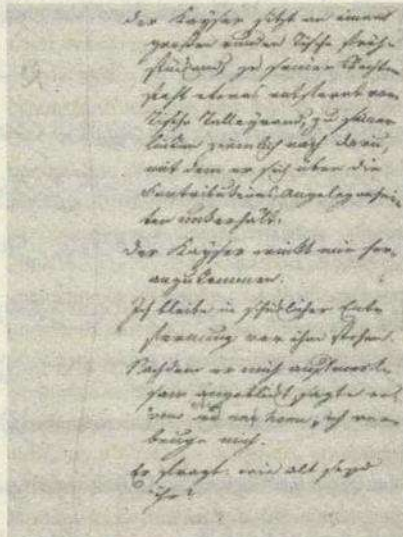 Der Kayser sitzt an einem
großen runden Tische früh-
stückend, zu seiner Rechten
steht etwas entfernt vom
Tische Talleyrand, zu seiner
linken ziemlich nach Daru,
mit dem er sich über die
Contributions Angelegenhei-
ten unterhält.
Der Kayser winkt mir her-
anzukommen.
Ich bleibe in schicklicher Ent-
fernung vor ihm stehen.
Nachdem er mich aufmerk-
sam angeblickt sagte er
vous un homme, ich ver-
beuge mich.
Er fragt: wie alt seyd
ihr?